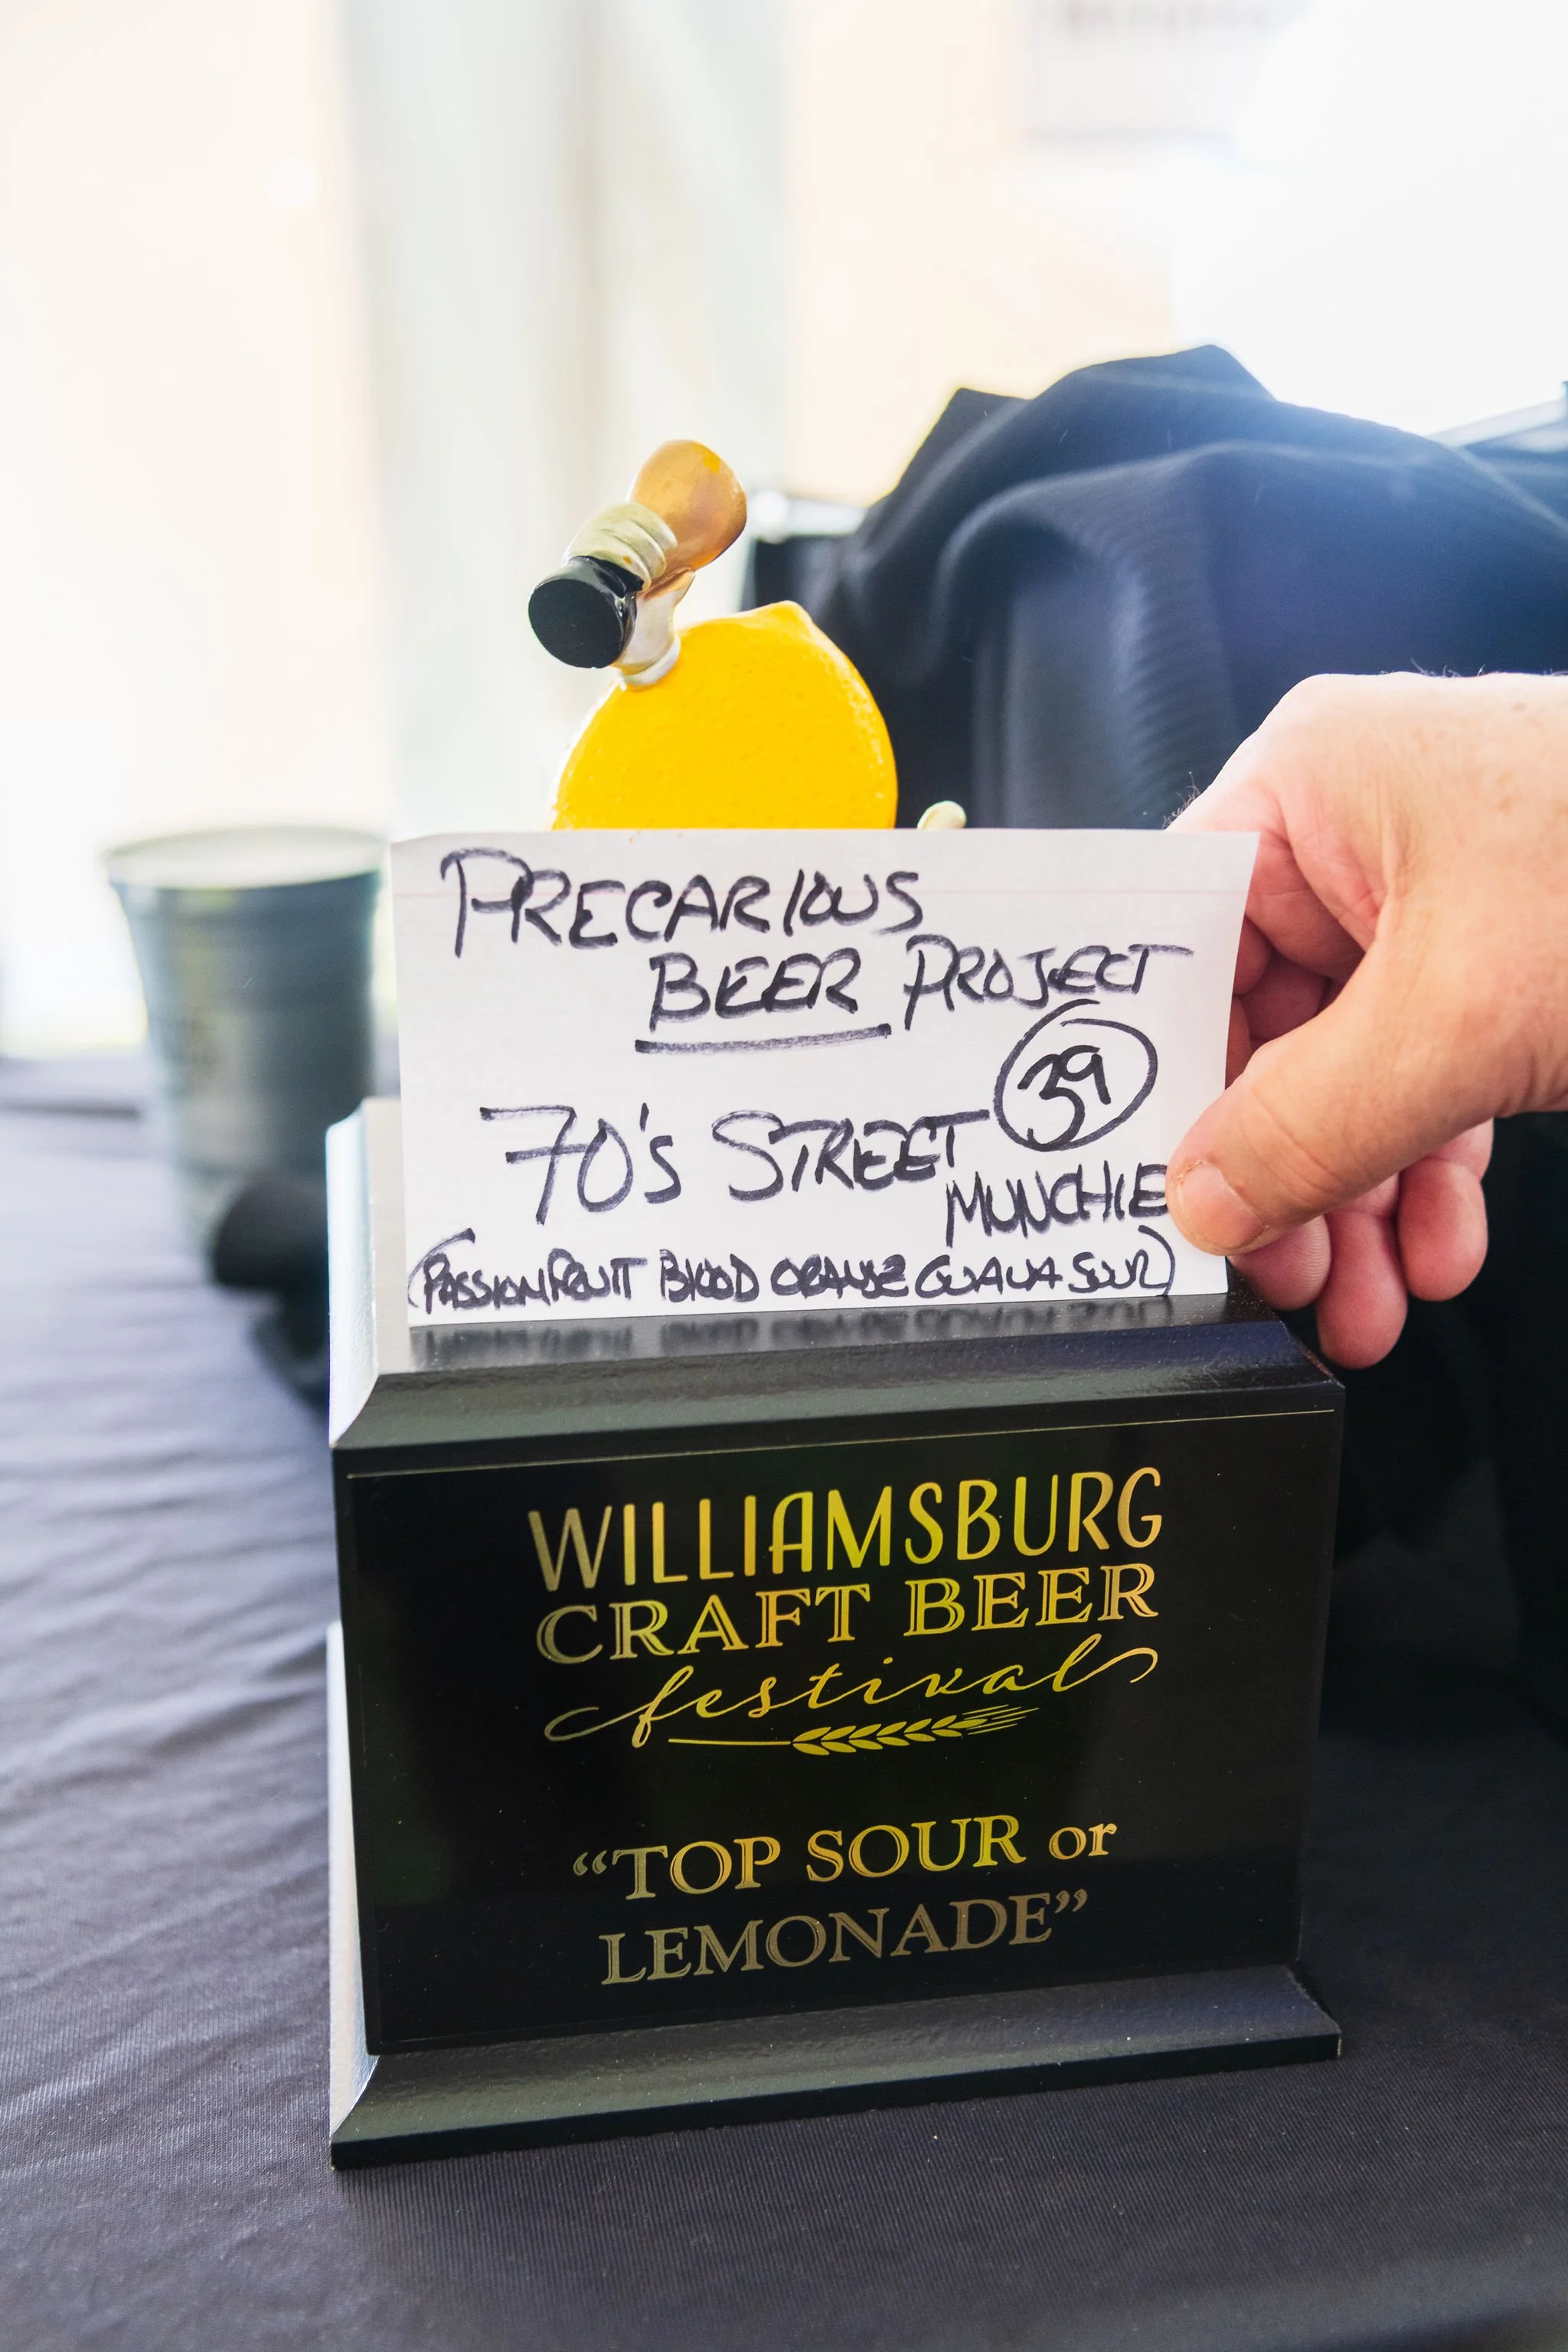 PRECARIOUS
BEER PROJECT
39
70'S STREET
MUNCHIE
(PASSIONFRUIT BLOOD ORANGE GUAVA SOUR)
WILLIAMSBURG
CRAFT BEER
festival
“TOP SOUR or
LEMONADE”